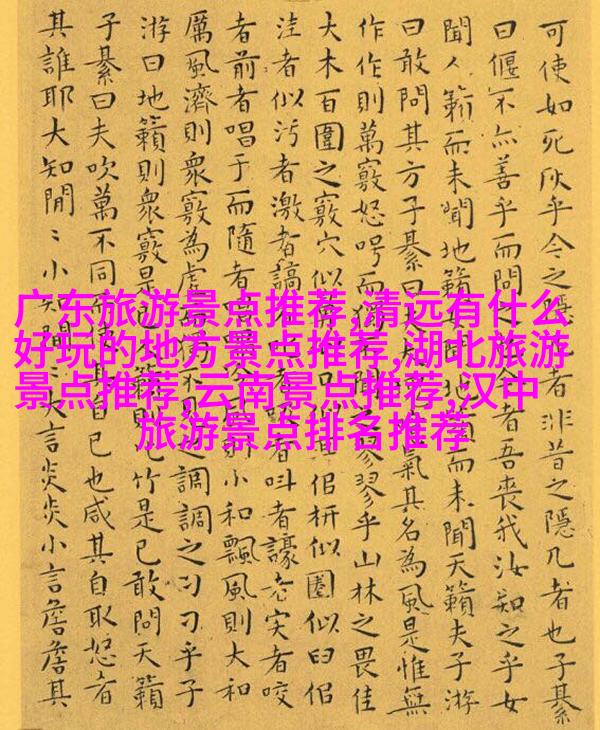 广东旅游景点推荐,清远有什么
好玩的地方景点推荐,湖北旅游
景点推荐,云南景点推荐,汉中
旅游景点排名推荐
可使如死灰乎今之隱者非昔之隱几者也子綦
曰偃不亦善乎而問之今者吾喪我汝知之乎女
聞人籟而未聞地籟聞地籟而未聞天籟夫子游
曰敢問其方子綦曰夫大氣其名為風是惟無
作作則萬竅怒呺而獨翏翏乎山林之畏佳
大木百圍之竅穴似口佀枅似圈似臼佀
洼者似污者激者謞者者叫者譹者宎者咬
者前者唱于而隨者唱小和飄風則大和
厲風濟則衆竅為虛不見之調調之刁刁乎子
游曰地籟則衆竅是已則竹是已敢問天籟
子綦曰夫吹萬不同使其自己也咸其自取怒者
其誰耶大知閒〻小知閒〻大言炎炎小言詹詹其